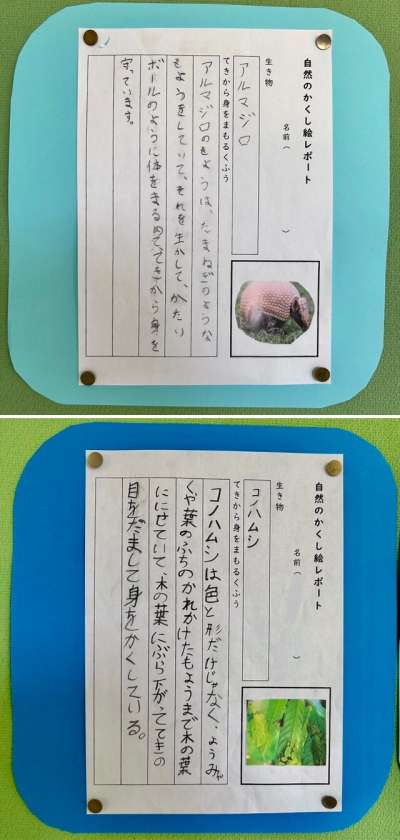 自然のかくし絵レポート
名前（　　）
生き物
アルマジロ
てきから身をまもるくふう
アルマジロのもようは、たまねぎのような
もようをしていて、それを生かして、かたい
ボールのように体をまるめて、てきから身を
守っています。
自然のかくし絵レポート
名前（　　）
生き物
コノハムシ
てきから身をまもるくふう
コノハムシは色と形だけじゃなく、ようみゃ
くや葉のふちのかれかけたもようまで木の葉
ににせていて、木の葉にぶら下がっててきの
目をだまして身をかくしている。